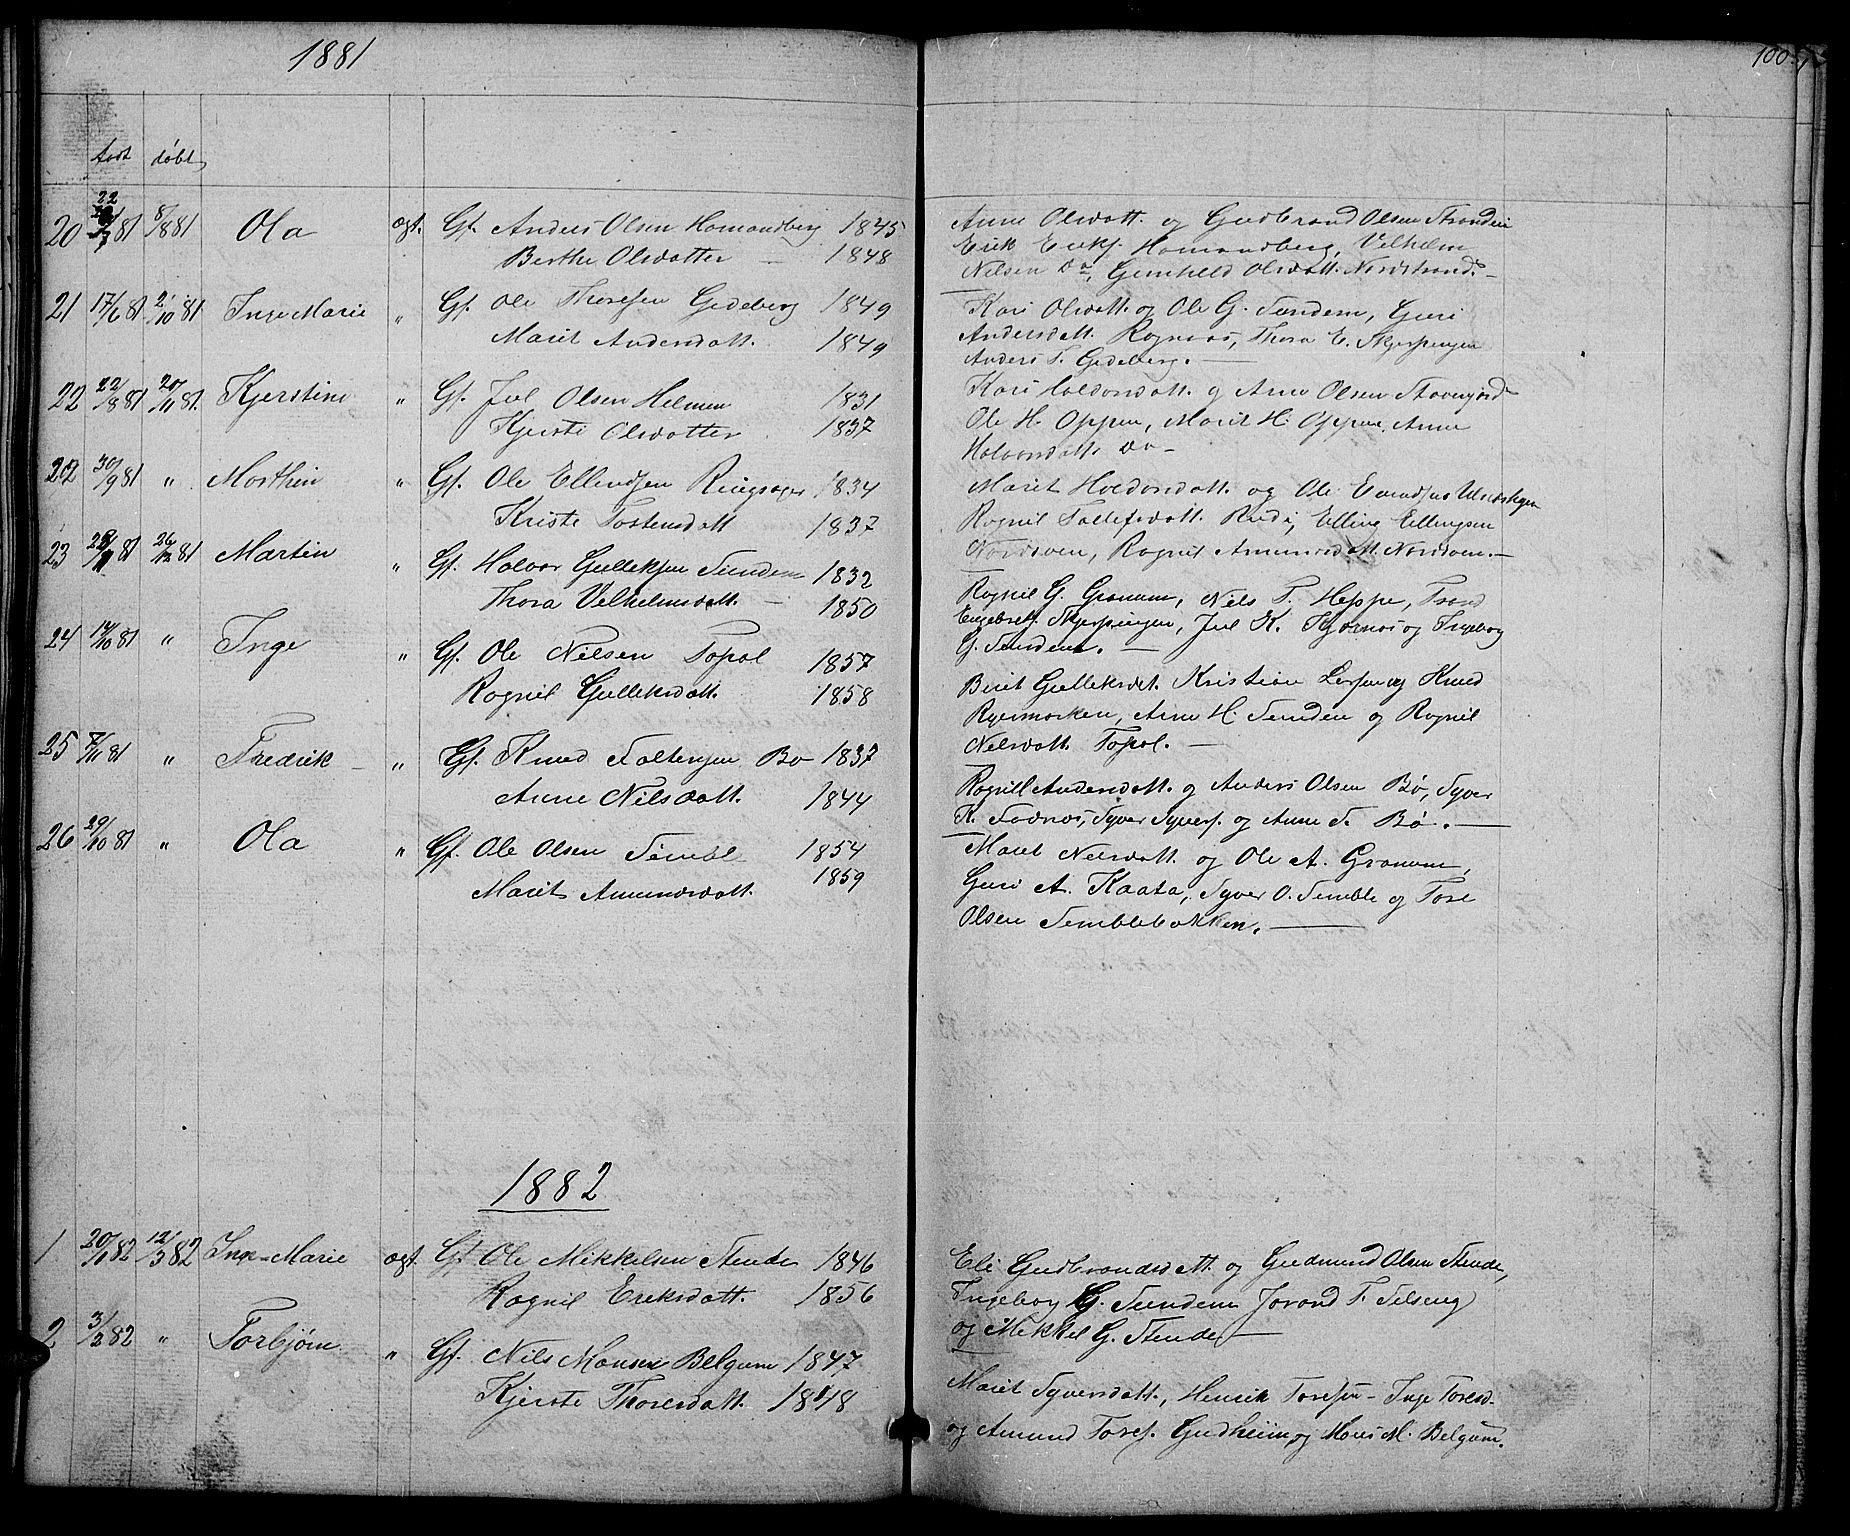 1881
100
født døbt
20 22/7 81 8/8 81 Ola ægt. Gf. Anders Olsen Homandberg 1845
Berthe Olsdatter — 1848
Anne Olsdatt. og Gudbrand Olsen Stranden
Erik Eriks. Homandberg, Velhelm
Nilsen Do, Gunhild Olsdatt. Nordstrand. —
21 17/6 81 2/10 81 Inge Marie " Gf. Ole Thoresen Gedeberg 1849
Marit Andersdatt. 1849
Kari Olsdatt. og Ole G. Sundem, Guri
Andersdatt. Rognaas, Thora E. Skjerpingen
Anders T. Gedeberg. —
22 22/8 81 20/11 81. Kjerstine " Gf. Jul Olsen Helmen 1831
Kjerste Olsdatter 1837
Kari Haldorsdatt. og Arne Olsen
Ole H. Oppen, Marit H. Oppen, Anne
Halvorsdatt. Do —
22 30/9 81 " Morthin " Gf. Ole Ellendsen Ringsager 1834
Kriste Tostensdatt 1837
Marit Haldorsdatt. og Ole
Rognil Tollefsdatt. Rudi, Elling Ellingsen
Nordsven, Rognil Amundsdatt. Nordsven. —
23 28/11 81 26/12 81 Martin " Gf. Halvor Gulleksen Sundem 1832
Thora Velhelmsdatt. — 1850
Rognil G. Granum, Nils T. Heppe, Trond
Engebrets. Skjerpingen, Jul K. Kjørnaas og Ingeborg
G. Sundem. —
24 14/10 81 " Inge " Gf. Ole Nilsen Topol 1857
Rognil Gulleksdatt. 1858
Birit Gulleksdt. Kristian Larsen og Knud
Ryermarken, Arne H. Sunden og Rognil
Nilsdatt. Topol. —
25 7/11 81 " Fredrik — " Gf. Knud Foltensen Bø 1837
Anne Nilsdatt. 1844
Rognil Andersdatt. og Anders Olsen Bø, Syver
K. Fodnos, Syver Syvers. og Anne S. Bø. —
26 29/10 81 " Ola " Gf. Ole Olsen Semble 1854
Marit Amundsdatt. 1859
Marit Nilsdatt. og Ole A. Granum,
Guri A. Kaata, Syver O. Semble og Tore
Olsen Semblebakken. —
1882
1 20/1 82 12/3 82 Inge-Marie ægt. Gf. Ole Mikkelsen Stende 1846
Rognil Eriksdatt. 1856
Eli Gudbrandsdatt. og Gudmund Olsen Stende,
Ingeborg G. Sundem Jorand T. Selseng
og Mikkel G. Stende —
2 3/2 82 " Torbjørn " Gf. Nils Monsen Belgum 1847
Kjerste Thoresdatt. 1848
Marit Syversdatt., Henrik Toresen — Inge Toresd.
og Amund Tores. Gudheim, og Mons M. Belgum.